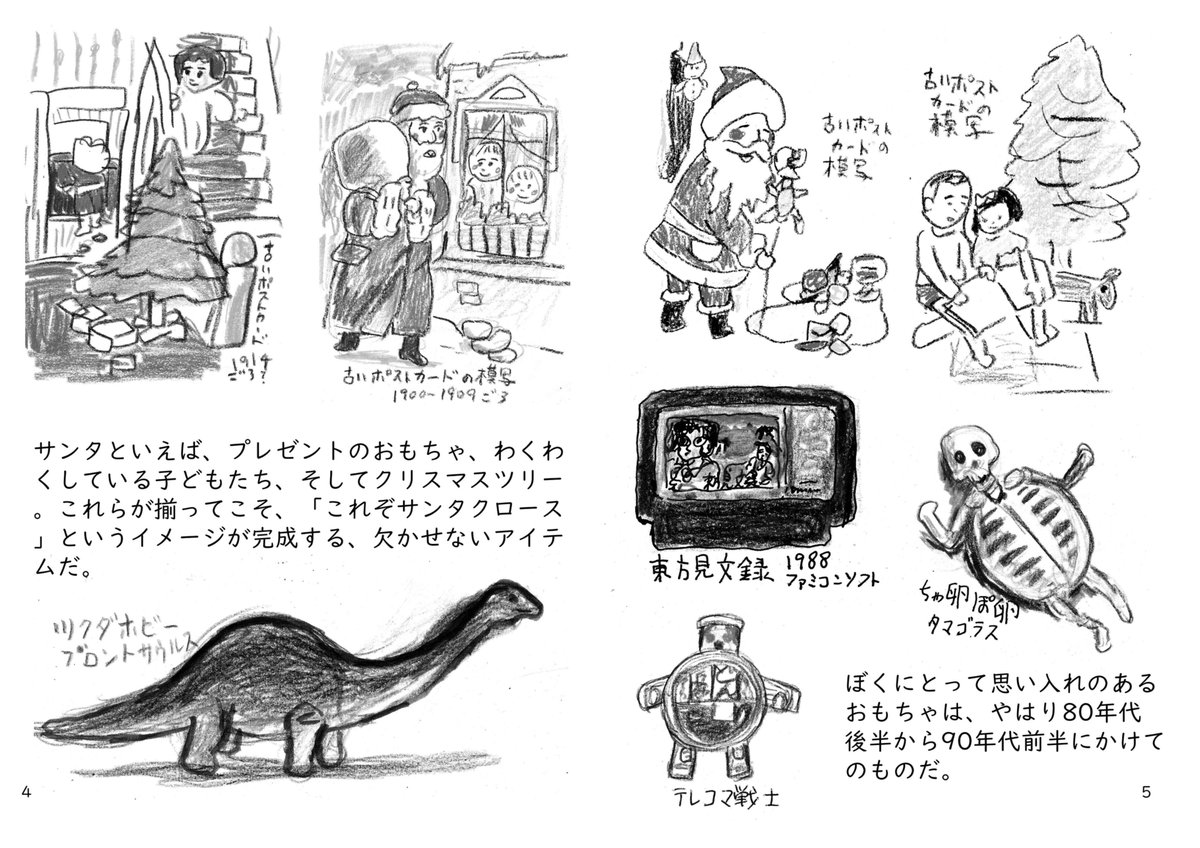 古いポストカード
1914
ごろ?
古いポストカードの模写
1900〜1909ごろ
サンタといえば、プレゼントのおもちゃ、わくわ
くしている子どもたち、そしてクリスマスツリー
。これらが揃ってこそ、「これぞサンタクロース
」というイメージが完成する、欠かせないアイテ
ムだ。
ツクダホビー
ブロントサウルス
4
古いポスト
カードの
模写
古いポスト
カードの
模写
東方見文録
1988
ファミコンソフト
ちゃ卵ぽ卵
タマゴラス
テレコマ戦士
ぼくにとって思い入れのある
おもちゃは、やはり80年代
後半から90年代前半にかけて
のものだ。
5